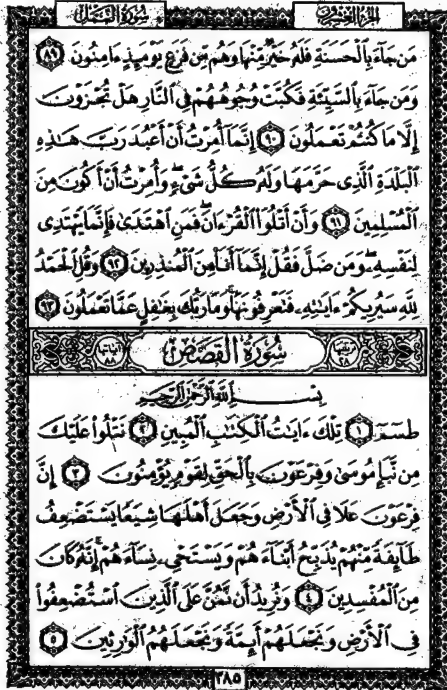 سُورَةُ النَّمْلِ الجُزْءُ العِشْرُونَ
مَن جَآءَ بِالْحَسَنَةِ فَلَهُۥ خَيْرٌ مِّنْهَا وَهُم مِّن فَزَعٍ يَوْمَئِذٍ ءَامِنُونَ ٨٩
وَمَن جَآءَ بِالسَّيِّئَةِ فَكُبَّتْ وُجُوهُهُمْ فِي النَّارِ هَلْ تُجْزَوْنَ
إِلَّا مَا كُنتُمْ تَعْمَلُونَ ٩٠ إِنَّمَآ أُمِرْتُ أَنْ أَعْبُدَ رَبَّ هَٰذِهِ
الْبَلْدَةِ الَّذِي حَرَّمَهَا وَلَهُۥ كُلُّ شَيْءٍ وَأُمِرْتُ أَنْ أَكُونَ مِنَ
الْمُسْلِمِينَ ٩١ وَأَنْ أَتْلُوَا۟ الْقُرْءَانَ فَمَنِ اهْتَدَىٰ فَإِنَّمَا يَهْتَدِي
لِنَفْسِهِۦ وَمَن ضَلَّ فَقُلْ إِنَّمَآ أَنَا۠ مِنَ الْمُنذِرِينَ ٩٢ وَقُلِ الْحَمْدُ
لِلَّهِ سَيُرِيكُمْ ءَايَٰتِهِۦ فَتَعْرِفُونَهَا وَمَا رَبُّكَ بِغَٰفِلٍ عَمَّا تَعْمَلُونَ ٩٣
سُورَةُ الْقَصَصِ
بِسْمِ اللَّهِ الرَّحْمَٰنِ الرَّحِيمِ
طسٓمٓ ١ تِلْكَ ءَايَٰتُ الْكِتَٰبِ الْمُبِينِ ٢ نَتْلُوا۟ عَلَيْكَ
مِن نَّبَإِ مُوسَىٰ وَفِرْعَوْنَ بِالْحَقِّ لِقَوْمٍ يُؤْمِنُونَ ٣ إِنَّ
فِرْعَوْنَ عَلَا فِي الْأَرْضِ وَجَعَلَ أَهْلَهَا شِيَعًا يَسْتَضْعِفُ
طَآئِفَةً مِّنْهُمْ يُذَبِّحُ أَبْنَآءَهُمْ وَيَسْتَحْيِۦ نِسَآءَهُمْ إِنَّهُۥ كَانَ
مِنَ الْمُفْسِدِينَ ٤ وَنُرِيدُ أَن نَّمُنَّ عَلَى الَّذِينَ اسْتُضْعِفُوا۟
فِي الْأَرْضِ وَنَجْعَلَهُمْ أَئِمَّةً وَنَجْعَلَهُمُ الْوَٰرِثِينَ ٥
٣٨٥